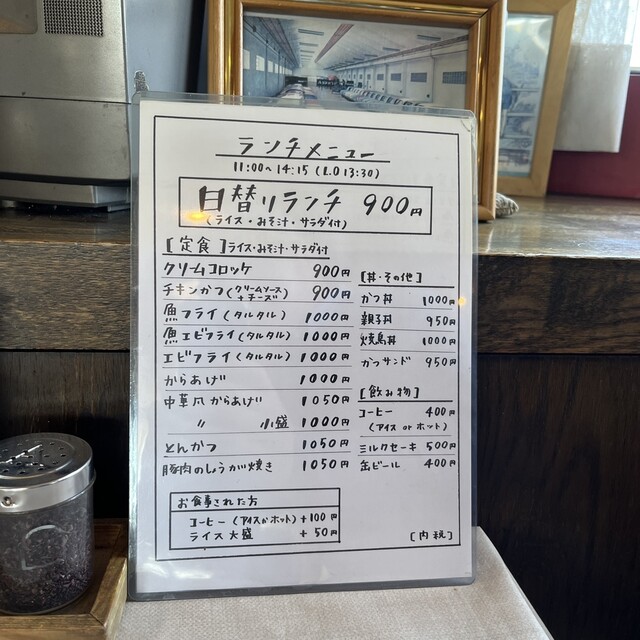 ランチメニュー
11:00〜14:15 (L.O 13:30)
日替りランチ 900円
(ライス・みそ汁・サラダ付)
[定食] ライス・みそ汁・サラダ付
クリームコロッケ 900円
チキンかつ (クリームソース+チーズ) 900円
魚フライ (タルタル) 1000円
魚エビフライ (タルタル) 1000円
エビフライ (タルタル) 1000円
からあげ 1000円
中華風からあげ 1050円
〃 小盛 1000円
とんかつ 1050円
豚肉のしょうが焼き 1050円
[丼・その他]
かつ丼 1000円
親子丼 950円
焼鳥丼 1000円
かつサンド 950円
[飲み物]
コーヒー 400円
(アイス or ホット)
ミルクセーキ 500円
缶ビール 400円
お食事された方
コーヒー (アイスかホット) +100円
ライス大盛 +50円
[内税]